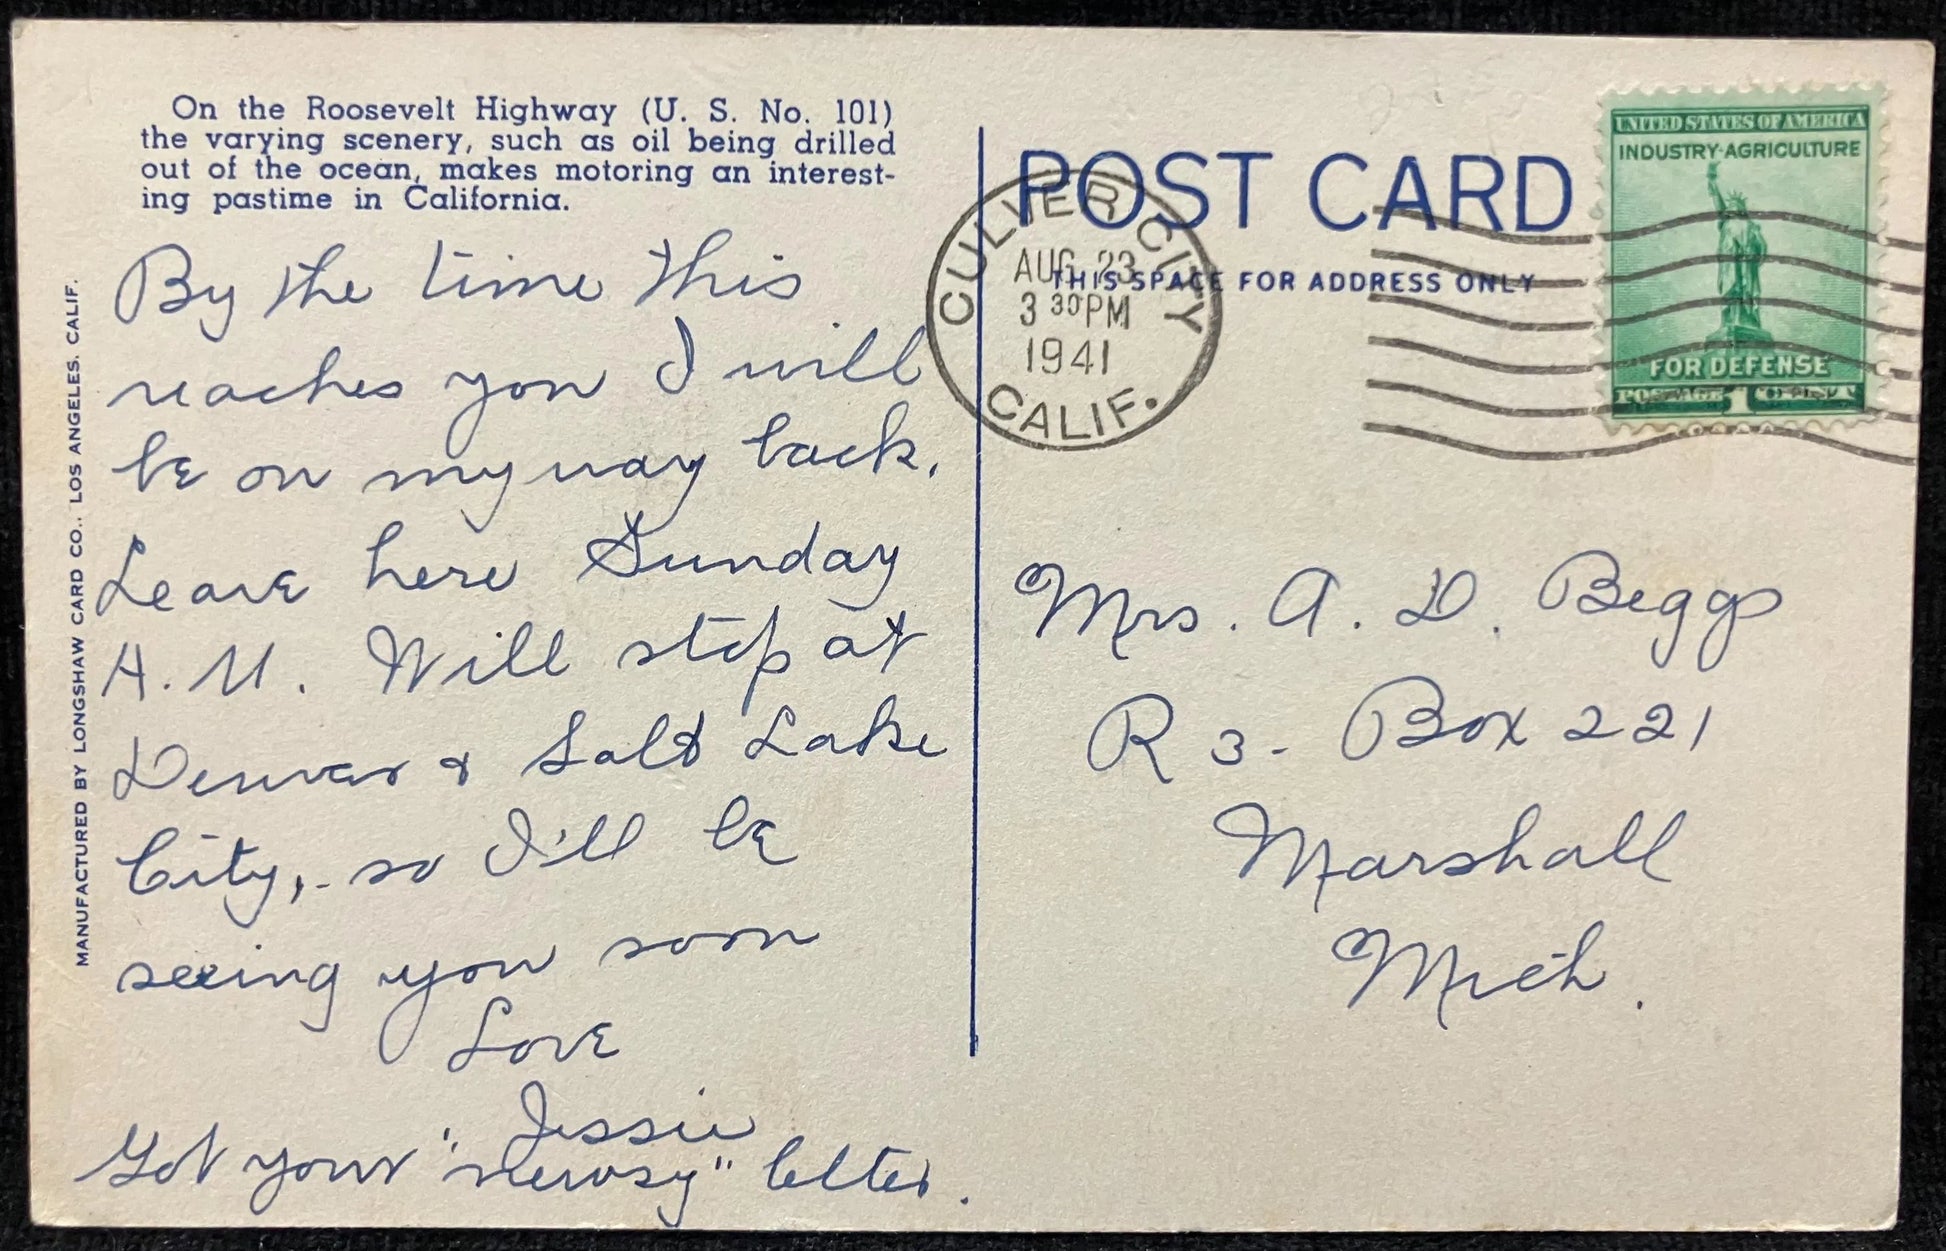 On the Roosevelt Highway (U. S. No. 101)
the varying scenery, such as oil being drilled
out of the ocean, makes motoring an interest-
ing pastime in California.
By the time this
reaches you I will
be on my way back.
Leave here Sunday
A.M. Will stop at
Denver & Salt Lake
City, - so I'll be
seeing you soon
Love
Jessie
Got your "newsy" letter.
MANUFACTURED BY LONGSHAW CARD CO., LOS ANGELES, CALIF.
POST CARD
THIS SPACE FOR ADDRESS ONLY
CULVER CITY
AUG 23
3 30 PM
1941
CALIF.
UNITED STATES OF AMERICA
INDUSTRY·AGRICULTURE
FOR DEFENSE
POSTAGE 1 CENT
Mrs. A. D. Beggs
R 3 - Box 221
Marshall
Mich.